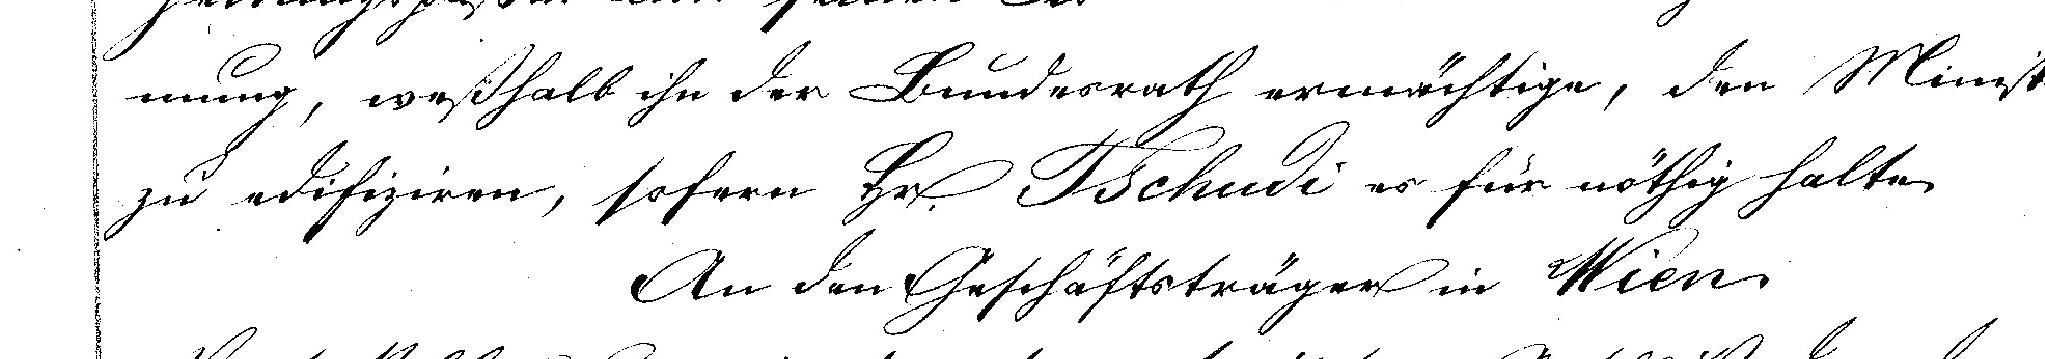 nung, weßhalb ihn der Bundesrath ermächtige, den Minist
zu edifiziren, sofern Hr. Tschudi es für nöthig halte
An den Geschäftsträger in Wien